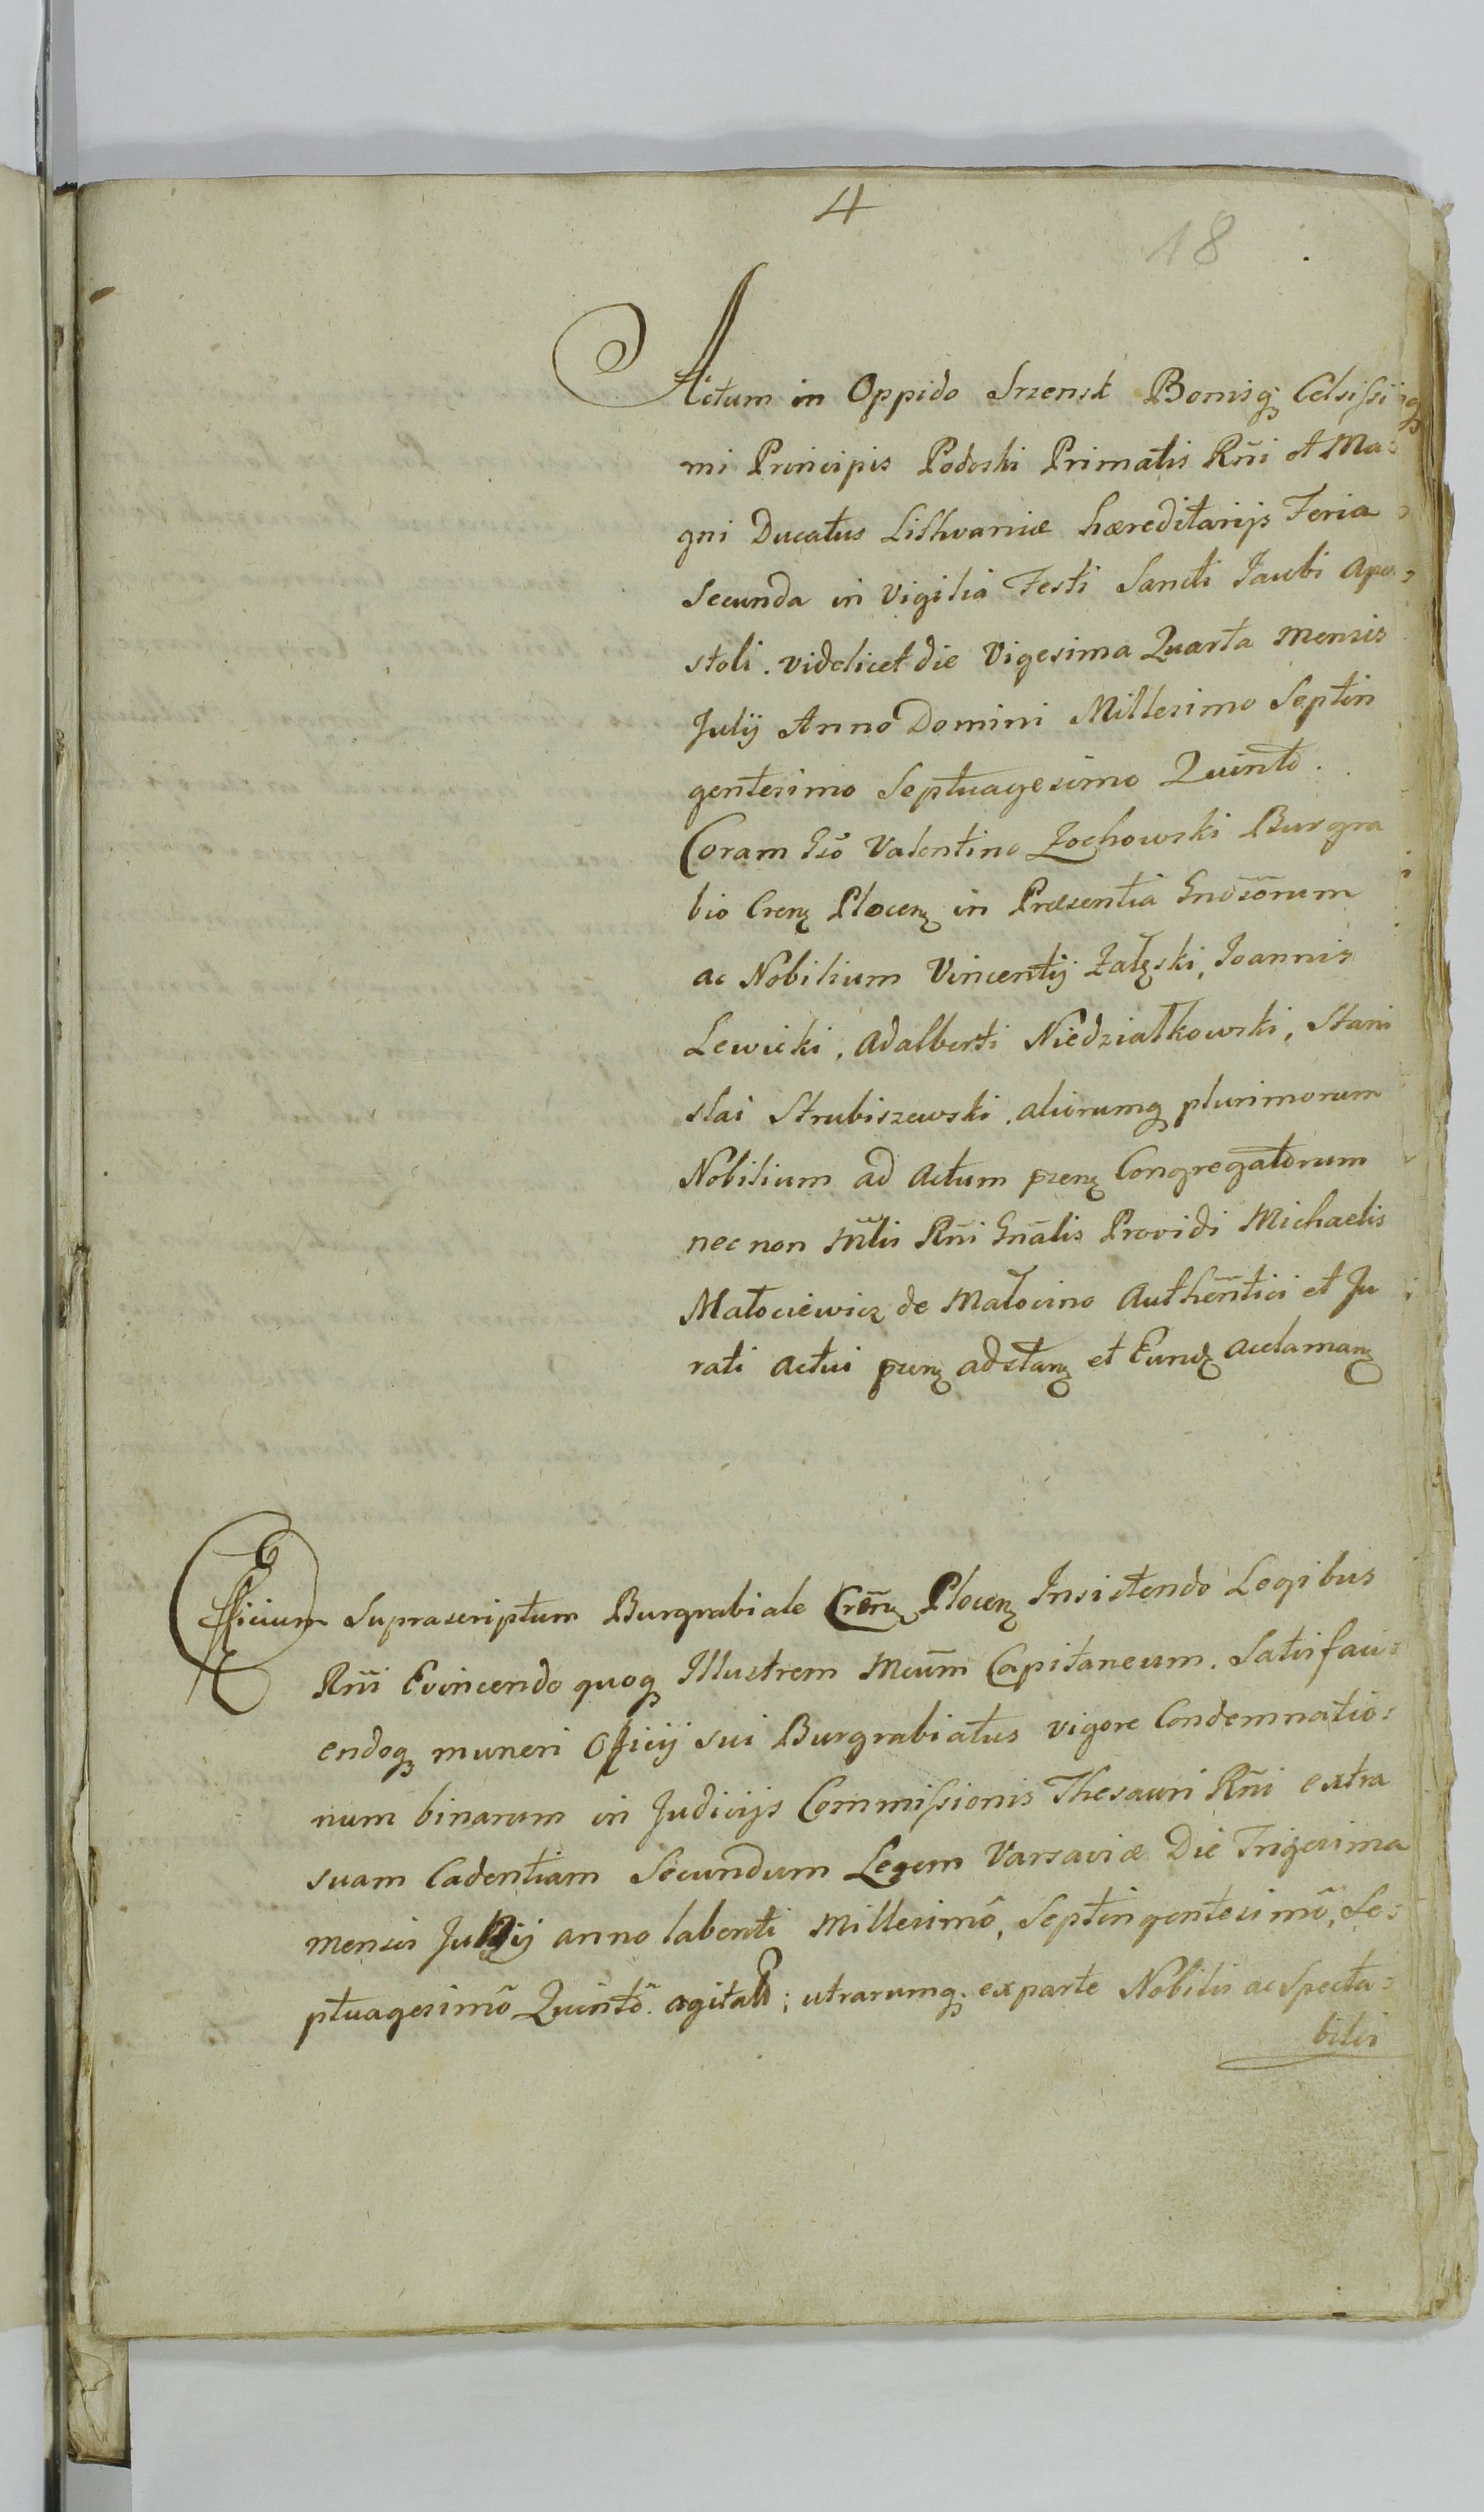 4
18
Actum in Oppido Srzensk Bonisq; Celsissi
mi Principis Podoski Primatis Rñi et Ma=
gni Ducatus Lithvaniæ hæreditarijs Feria
secunda in Vigilia Festi Sancti Jacobi Apo=
stoli. videlicet die Vigesima Quarta Mensis
Julij Anno Domini Millesimo Septin
gentesimo Septuagesimo Quinto.
Coram Gsõ Valentino Zochowski Burgra
bio Crenz Plocenz in Præsentia Gndsõrum
ac Nobilium Vincentij Załęski, Joannis
Lewicki, Adalberti Niedziałkowski, Stani
slai Strubiszewski. aliorumq plurimorum
Nobilium ad Actum przenz Congregatorum
nec non Mtlis Rñi Gñalis Providi Michaelis
Małociewicz de Małocino Authentici et Ju
rati Actui prenz adstanz et Eundz acclamanz
Officium Suprascriptum Burgrabiale Crenz Plocenz Insistendo Legibus
Rñi Evincendo quoq Illustrem Mcum Capitaneum. Satisfaci=
endoq muneri Officij sui Burgrabiatus vigore Condemnatio=
num binarum in Judicijs Commissionis Thesauri Rñi extra
suam Cadentiam Secundum Legem Varsaviæ Die Trigesima
mensis Junij anno labenti Millesimõ, Septingentesimõ, Se=
ptuagesimõ Quintõ. agitat; utrarumq. ex parte Nobilis ac Specta=
bilis